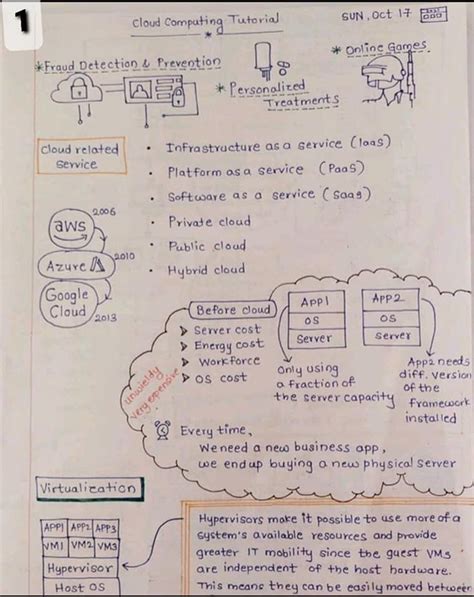 1
Cloud Computing Tutorial
SUN, Oct 17
* Fraud Detection & Prevention
* Personalized
Treatments
* Online Games
Cloud related
Service
• Infrastructure as a service (IaaS)
• Platform as a service (PaaS)
• Software as a service (SaaS)
• Private cloud
• Public cloud
• Hybrid cloud
aws
2006
Azure
2010
Google
Cloud
2013
Before cloud
Server cost
Energy cost
Workforce
OS cost
unwieldy
very expensive
App1
OS
Server
App2
OS
Server
Only using
a fraction of
the server capacity
App2 needs
diff. version
of the
Framework
installed
Every time,
We need a new business app,
we end up buying a new physical server
Virtualization
APP1 APP2 APP3
VM1 VM2 VM3
Hypervisor
Host OS
Hypervisors make it possible to use more of a
system's available resources and provide
greater IT mobility since the guest VMs
are independent of the host hardware.
This means they can be easily moved between